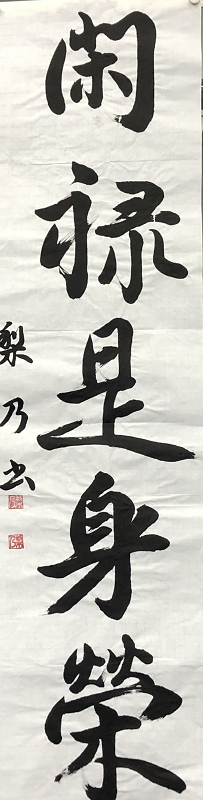 閑禄是身榮
梨乃書